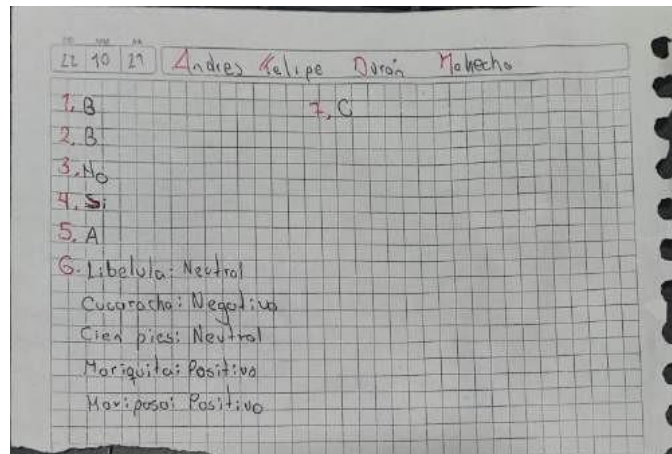 DD MM AA
22 10 21 Andres Felipe Durán Mahecha
1. B
2. B
3. No
4. Si
5. A
6. Libelula: Neutral
Cucaracha: Negativo
Cien pies: Neutral
Mariquita: Positivo
Mariposa: Positivo
7. C